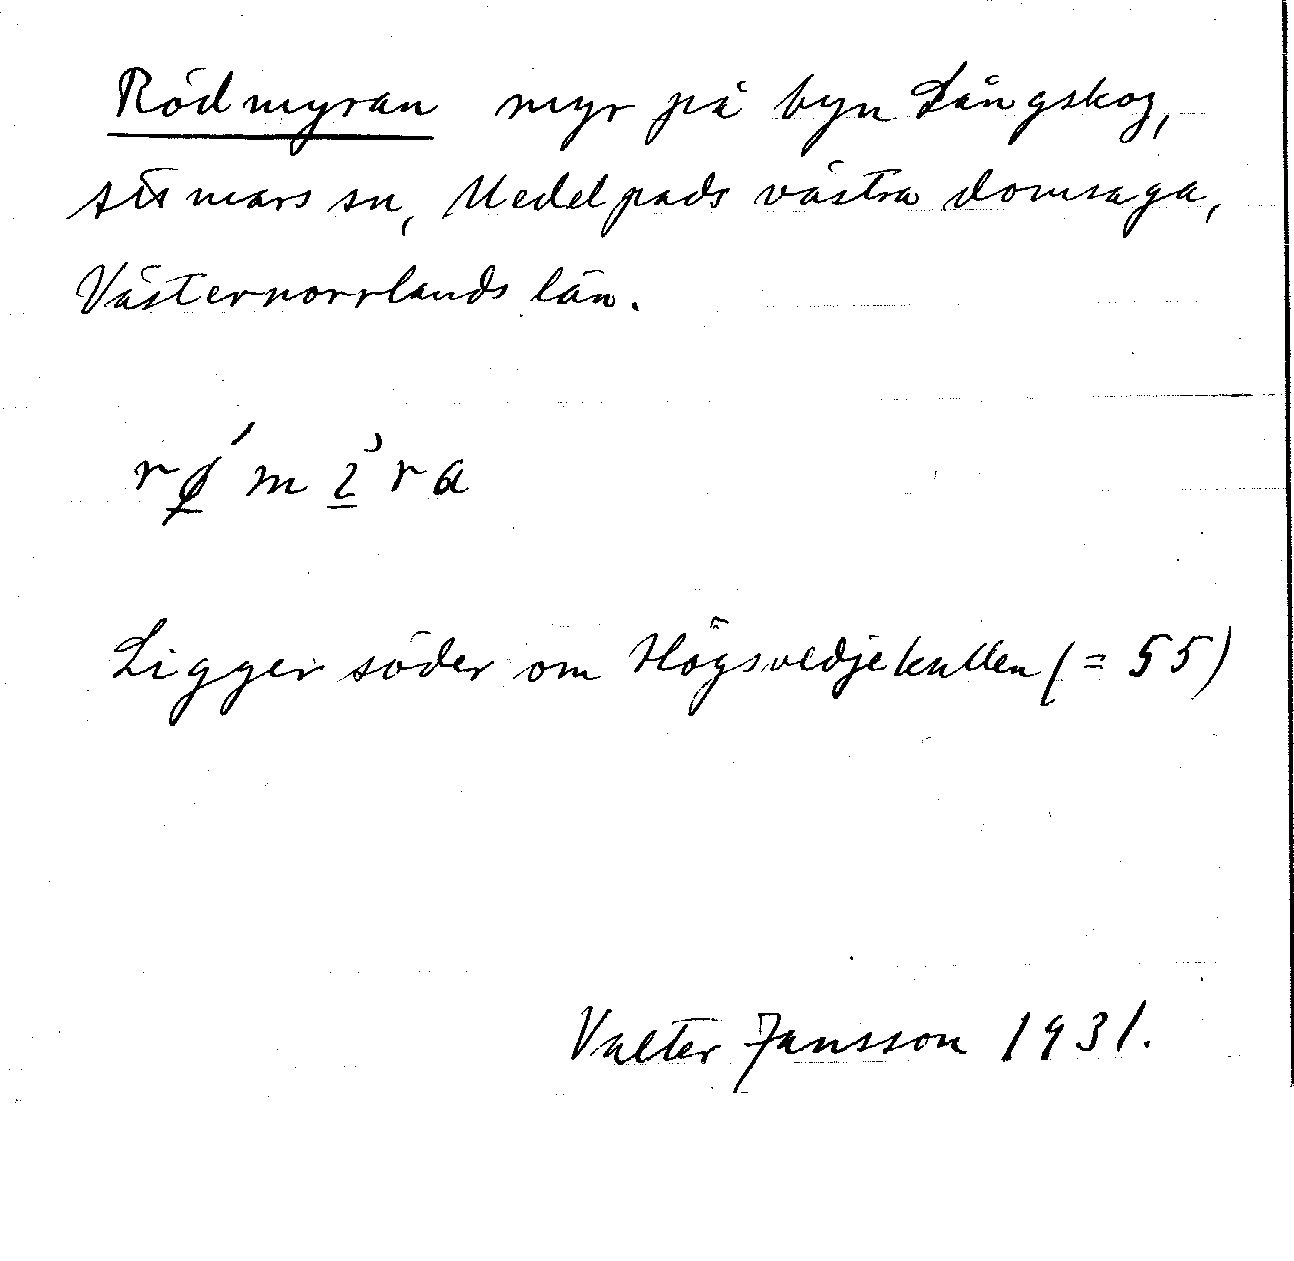 Rödmyran myr på byn Långskog,
Attmars sn, Medelpads västra domsaga,
Västernorrlands län.
Ligger söder om Högsvedjekullen (= 55)
Valter Jansson 1931.